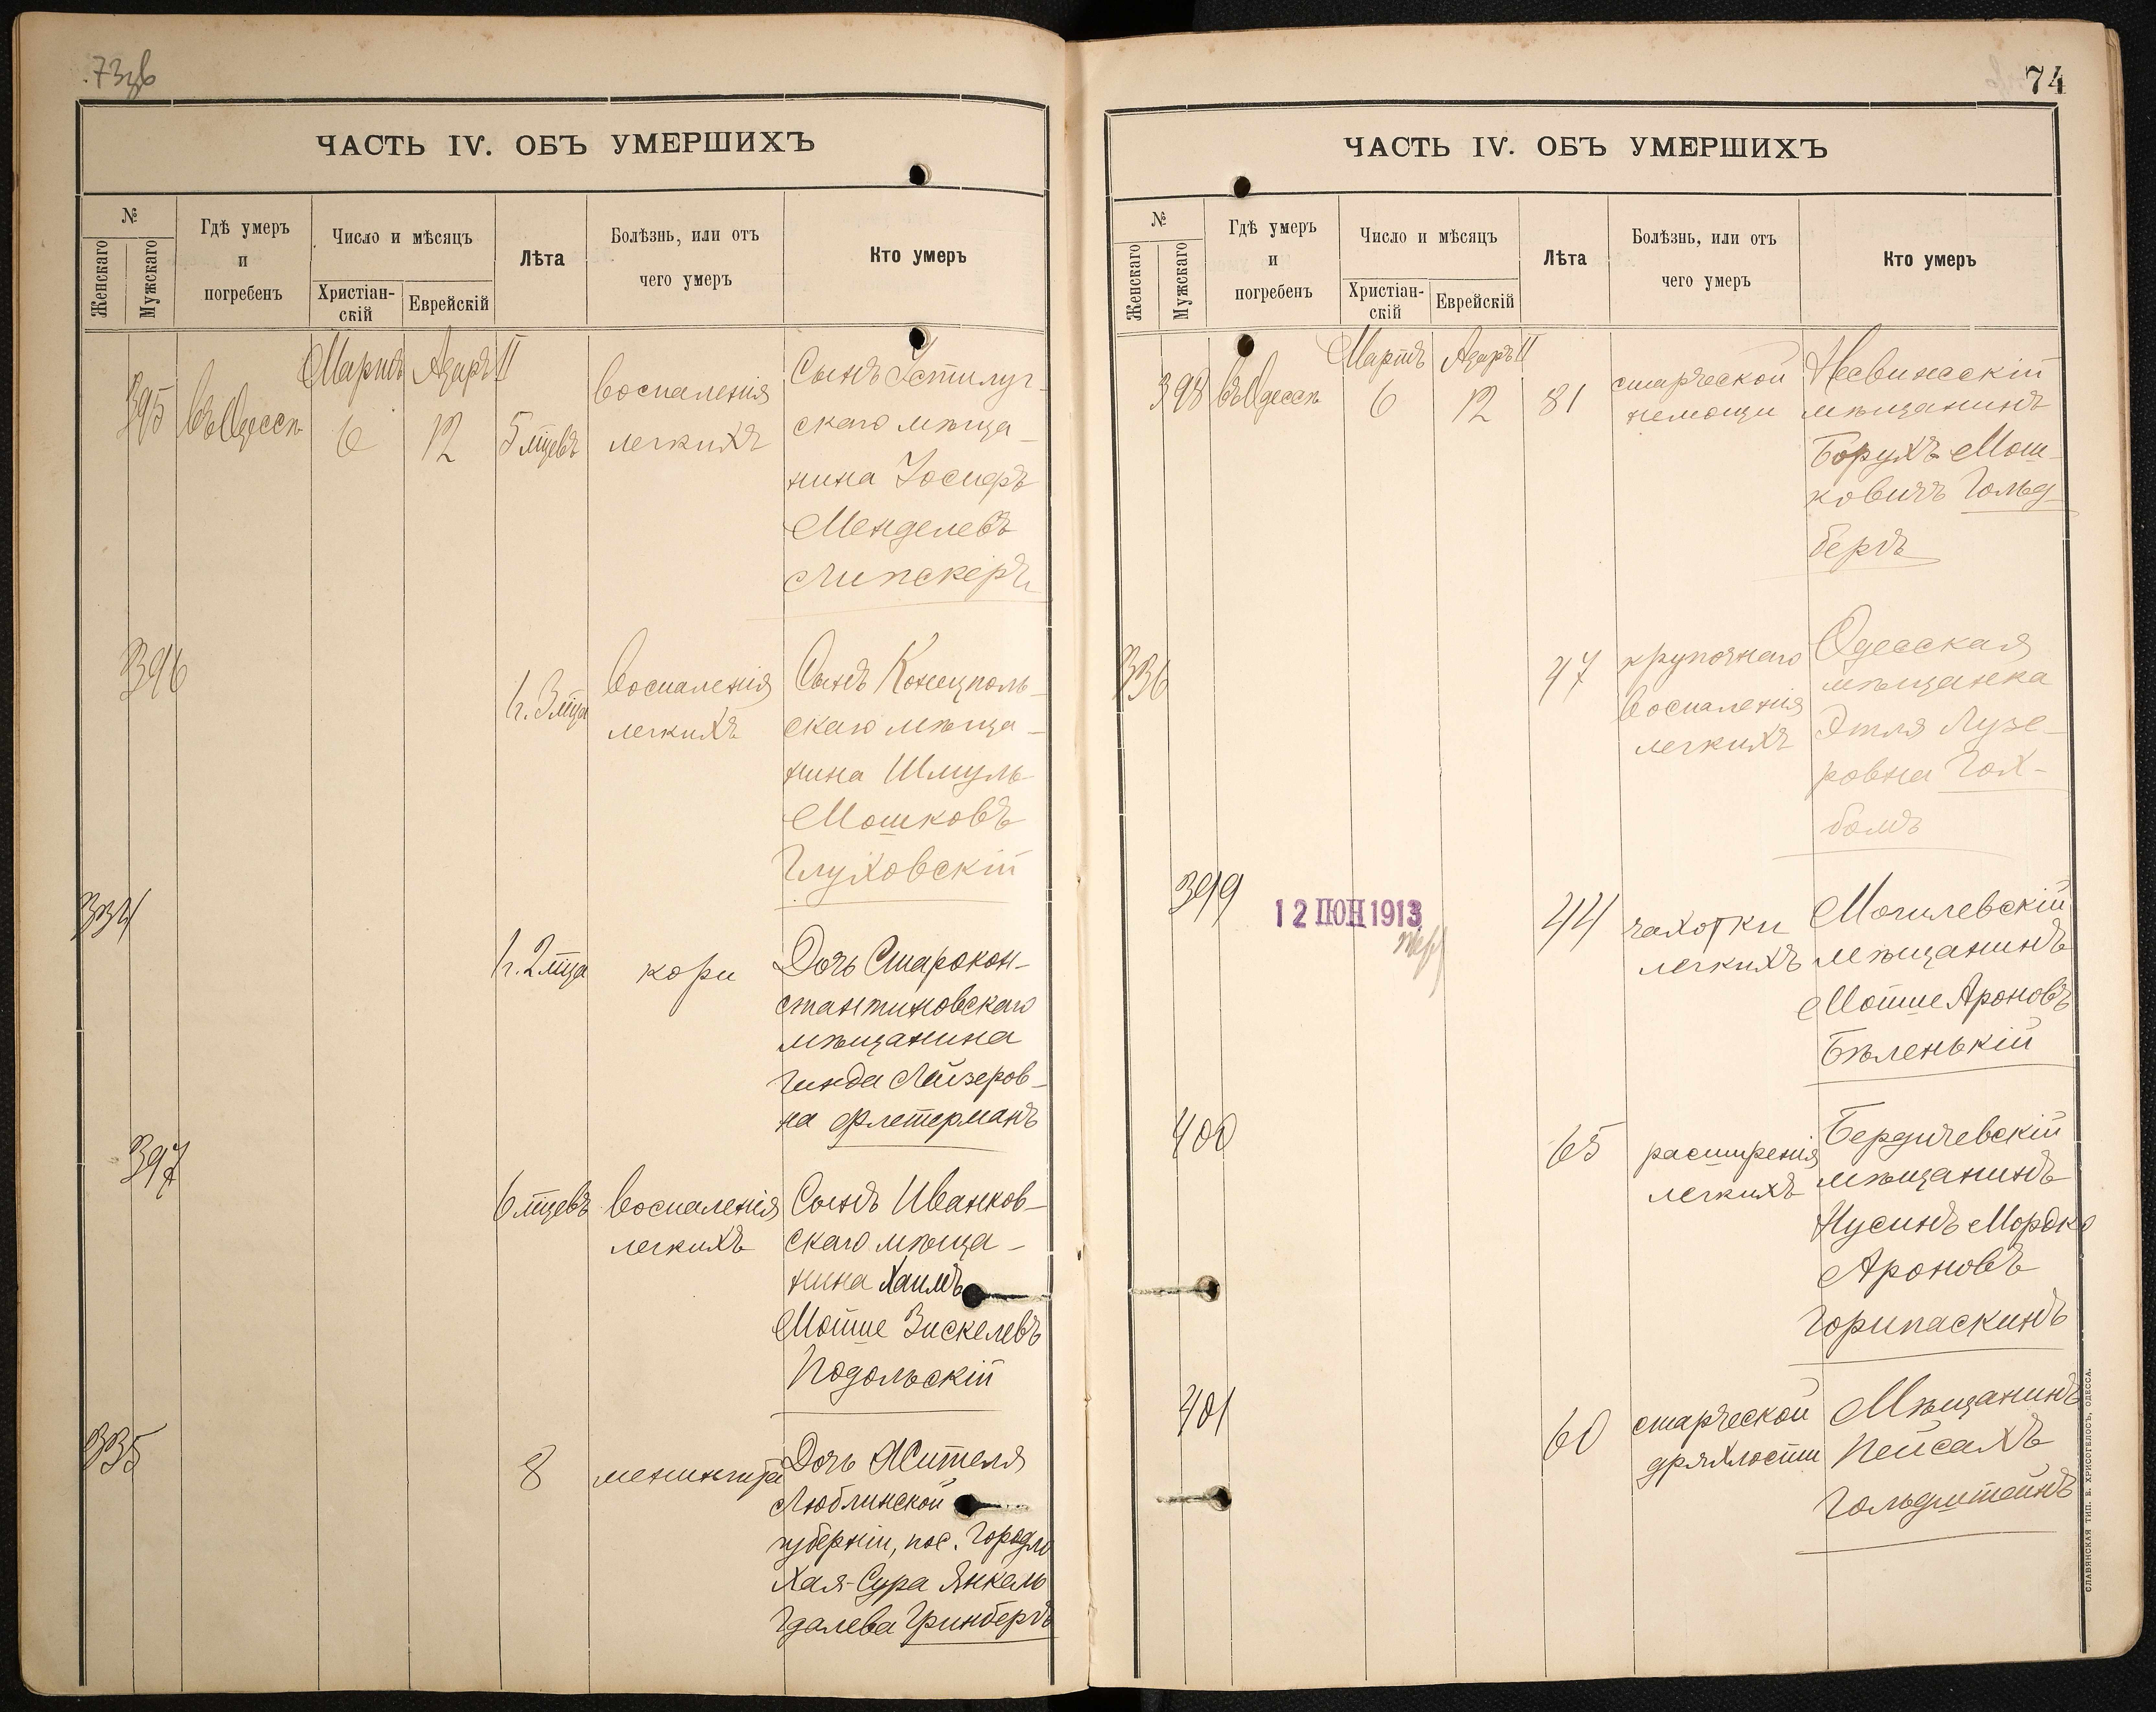 73об
ЧАСТЬ IV. ОБЪ УМЕРШИХЪ
№
Женскаго
Мужскаго
Гдѣ умеръ
и
погребенъ
Число и мѣсяцъ
Христіан-
скій
Еврейскій
Лѣта
Болѣзнь, или отъ
чего умеръ
Кто умеръ
Мартъ Адаръ II
395 въ Одессѣ 6 12 5 мцевъ
воспаленія
легкихъ
Сынъ Устилуг-
скаго мѣща-
нина Іосифъ
Менделевъ
Липскеръ
396
1г. 3 мца
воспаленія
легкихъ
Сынъ Конецполь-
скаго мѣща-
нина Шмуль
Мошковъ
Глуховскій
334
1г. 2 мца
кори
Дочь Старокон-
стантиновскаго
мѣщанина
Гинда Лейзеров-
на Флетерманъ
397
6 мцевъ
воспаленія
легкихъ
Сынъ Иванков-
скаго мѣща-
нина Хаимъ
Мойше Зискелевъ
Подольскій
335
8
менингита
Дочь жителя
Люблинской
губерніи, пос. Городло
Хая-Сура Янкель
Гдалева Гринбергъ
74
ЧАСТЬ IV. ОБЪ УМЕРШИХЪ
№
Женскаго
Мужскаго
Гдѣ умеръ
и
погребенъ
Число и мѣсяцъ
Христіан-
скій
Еврейскій
Лѣта
Болѣзнь, или отъ
чего умеръ
Кто умеръ
Мартъ Адаръ II
398 въ Одессѣ 6 12 81
старческой
немощи
Несвижскій
мѣщанинъ
Борухъ Мош-
ковичъ Гольд-
бергъ
336
47
крупознаго
воспаленія
легкихъ
Одесская
мѣщанка
Этля Лузе-
ровна Гох-
бомъ
399
12 ІЮН 1913
44
чахотки
легкихъ
Могилевскій
мѣщанинъ
Мойше Ароновъ
Бѣленькій
400
65
расширенія
легкихъ
Бердичевскій
мѣщанинъ
Нусинъ Мордко
Ароновъ
Горипаскинъ
401
60
старческой
дряхлости
Мѣщанинъ
Пейсахъ
Гольдштейнъ
СЛАВЯНСКАЯ ТИП. Е. ХРИСОГЕЛОСЪ, ОДЕССА.